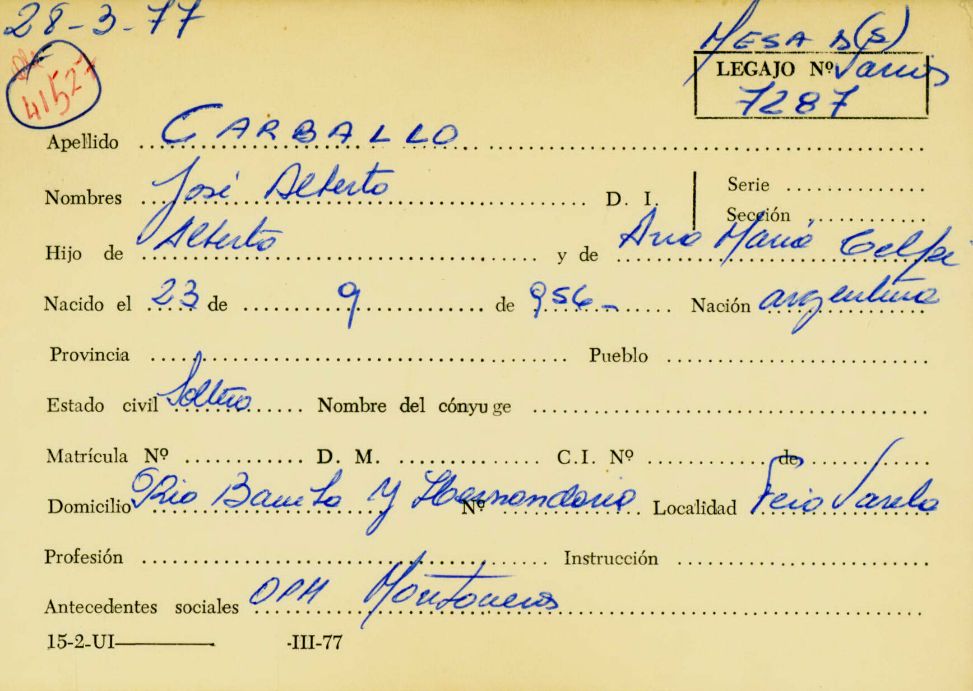 28-3-77
MESA DS(S)
41527
LEGAJO Nº Varios
7287
Apellido CARBALLO
Nombres José Alberto D. I. Serie
Sección
Hijo de Alberto y de Ana María
Nacido el 23 de 9 de 956- Nación argentina
Provincia Pueblo
Estado civil Soltero Nombre del cónyuge
Matrícula Nº D. M. C.I. Nº de
Domicilio Rio y Hernandarias Nº Localidad Fcio Varela
Profesión Instrucción
Antecedentes sociales OPM Montoneros
15-2-UI -III-77